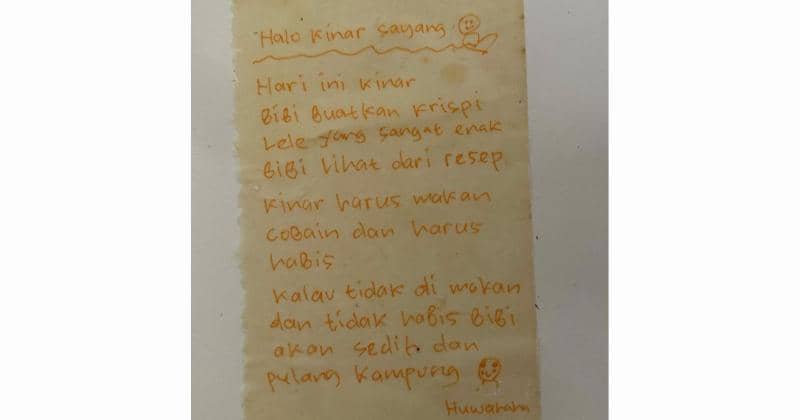 "Halo Kinar sayang
Hari ini Kinar
Bibi Buatkan Krispi
Lele yang sangat enak
Bibi Lihat dari resep
Kinar harus makan
cobain dan harus
habis
Kalau tidak di makan
dan tidak habis Bibi
akan sedih dan
pulang kampung
Huwahaha